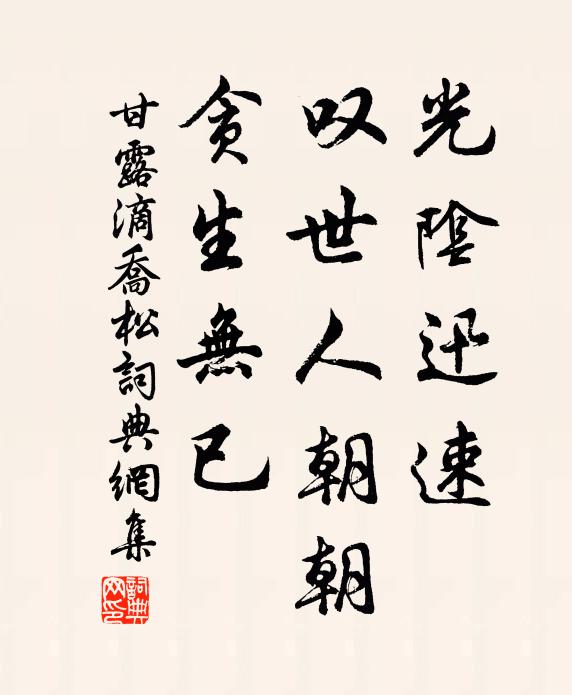 光陰迅速
叹世人朝朝
贪生無已
甘露滴喬松詞典網集
詞典网印